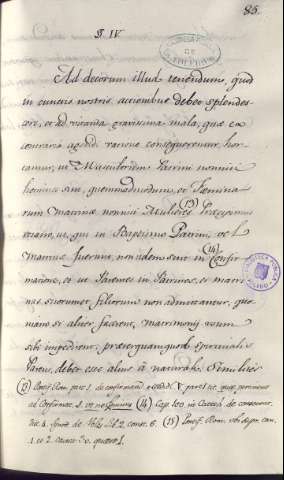 85.
§. IV
Ad decorum illud tenendum, quod
in cunctis nostris actionibus debet splendes-
cere, et ad vitanda gravissima mala, quæ ex
contraria agendi ratione consequerentur, hor-
tamur, ut Masculorum Patrini nonnisi
homines sint, quemadmodum, et Fœmina-
rum Matrinæ nonnisi Mulieres. (13) Præcipimus
etiam, ut, qui in Baptismo Patrini, vel
Matrinæ fuerunt, non idem sint in (14) Confir-
matione, et ut Parentes in Patrinos, et matri-
nas suorummet filiorum non admittantur, quo-
niam si aliter facerent, Matrimonij usum
sibi impedirent, præterquamquod Spiritualis
Parens, debet esse alius à naturali. Similiter
(13) Pontif. Rom. par. 1. de confirmandis
ad Confirmat. §. (14) Cap. 100 in Caten. de consecrat.
dist. 4. Synod. de lib. 2. const. 6. (15) Pontif. Rom. ubi supr. can.
1. et 2. causa 30. quæst. 1.